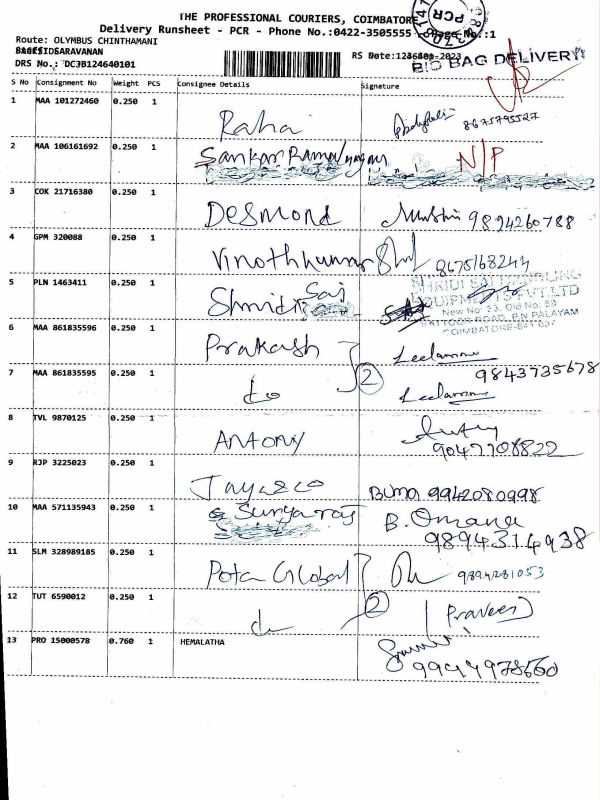 THE PROFESSIONAL COURIERS, COIMBATORE
Delivery Runsheet - PCR - Phone No.:0422-3505555 Page No.:1
Route: OLYMBUS CHINTHAMANI
SARAVANAN
DRS No.: DCJB124640101
RS Date:
PCR
BIG BAG DELIVERY
S No Consignment No Weight PCS Consignee Details Signature
1 MAA 101272460 0.250 1 Raha 8675795527
2 MAA 106161692 0.250 1 Sankar Ramalingam N/P
3 COK 21716380 0.250 1 Desmond 9894260788
4 GPM 320088 0.250 1 Vinothkumar 8675168244
5 PLN 1463411 0.250 1 Shridi Sai
SHRIDI SAI
EQUIPMENTS PVT LTD
New No 33, Old No. 
ROAD, P.N PALAYAM
COIMBATORE-641 037
6 MAA 861835596 0.250 1 Prakash Leelamma
7 MAA 861835595 0.250 1 do 2 9843735678
Leelamma
8 TVL 9870125 0.250 1 Antony
9047708822
9 RJP 3225023 0.250 1 Jayseco 9942080998
10 MAA 571135943 0.250 1 Suryaraj B. Omana
9894314938
11 SLM 328989185 0.250 1 Pota Global 9894281053
12 TUT 6590012 0.250 1 do 2 (Praveen)
13 PRO 15000578 0.760 1 HEMALATHA
9944978560